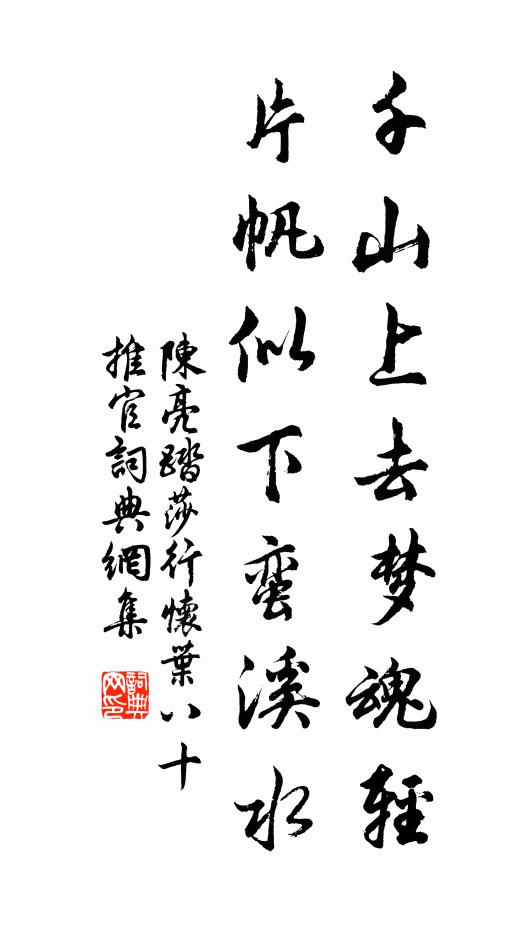 千山上去梦魂轻
片帆似下蛮溪水
陳亮踏莎行懷葉八十
推官詞典網集
詞典网印